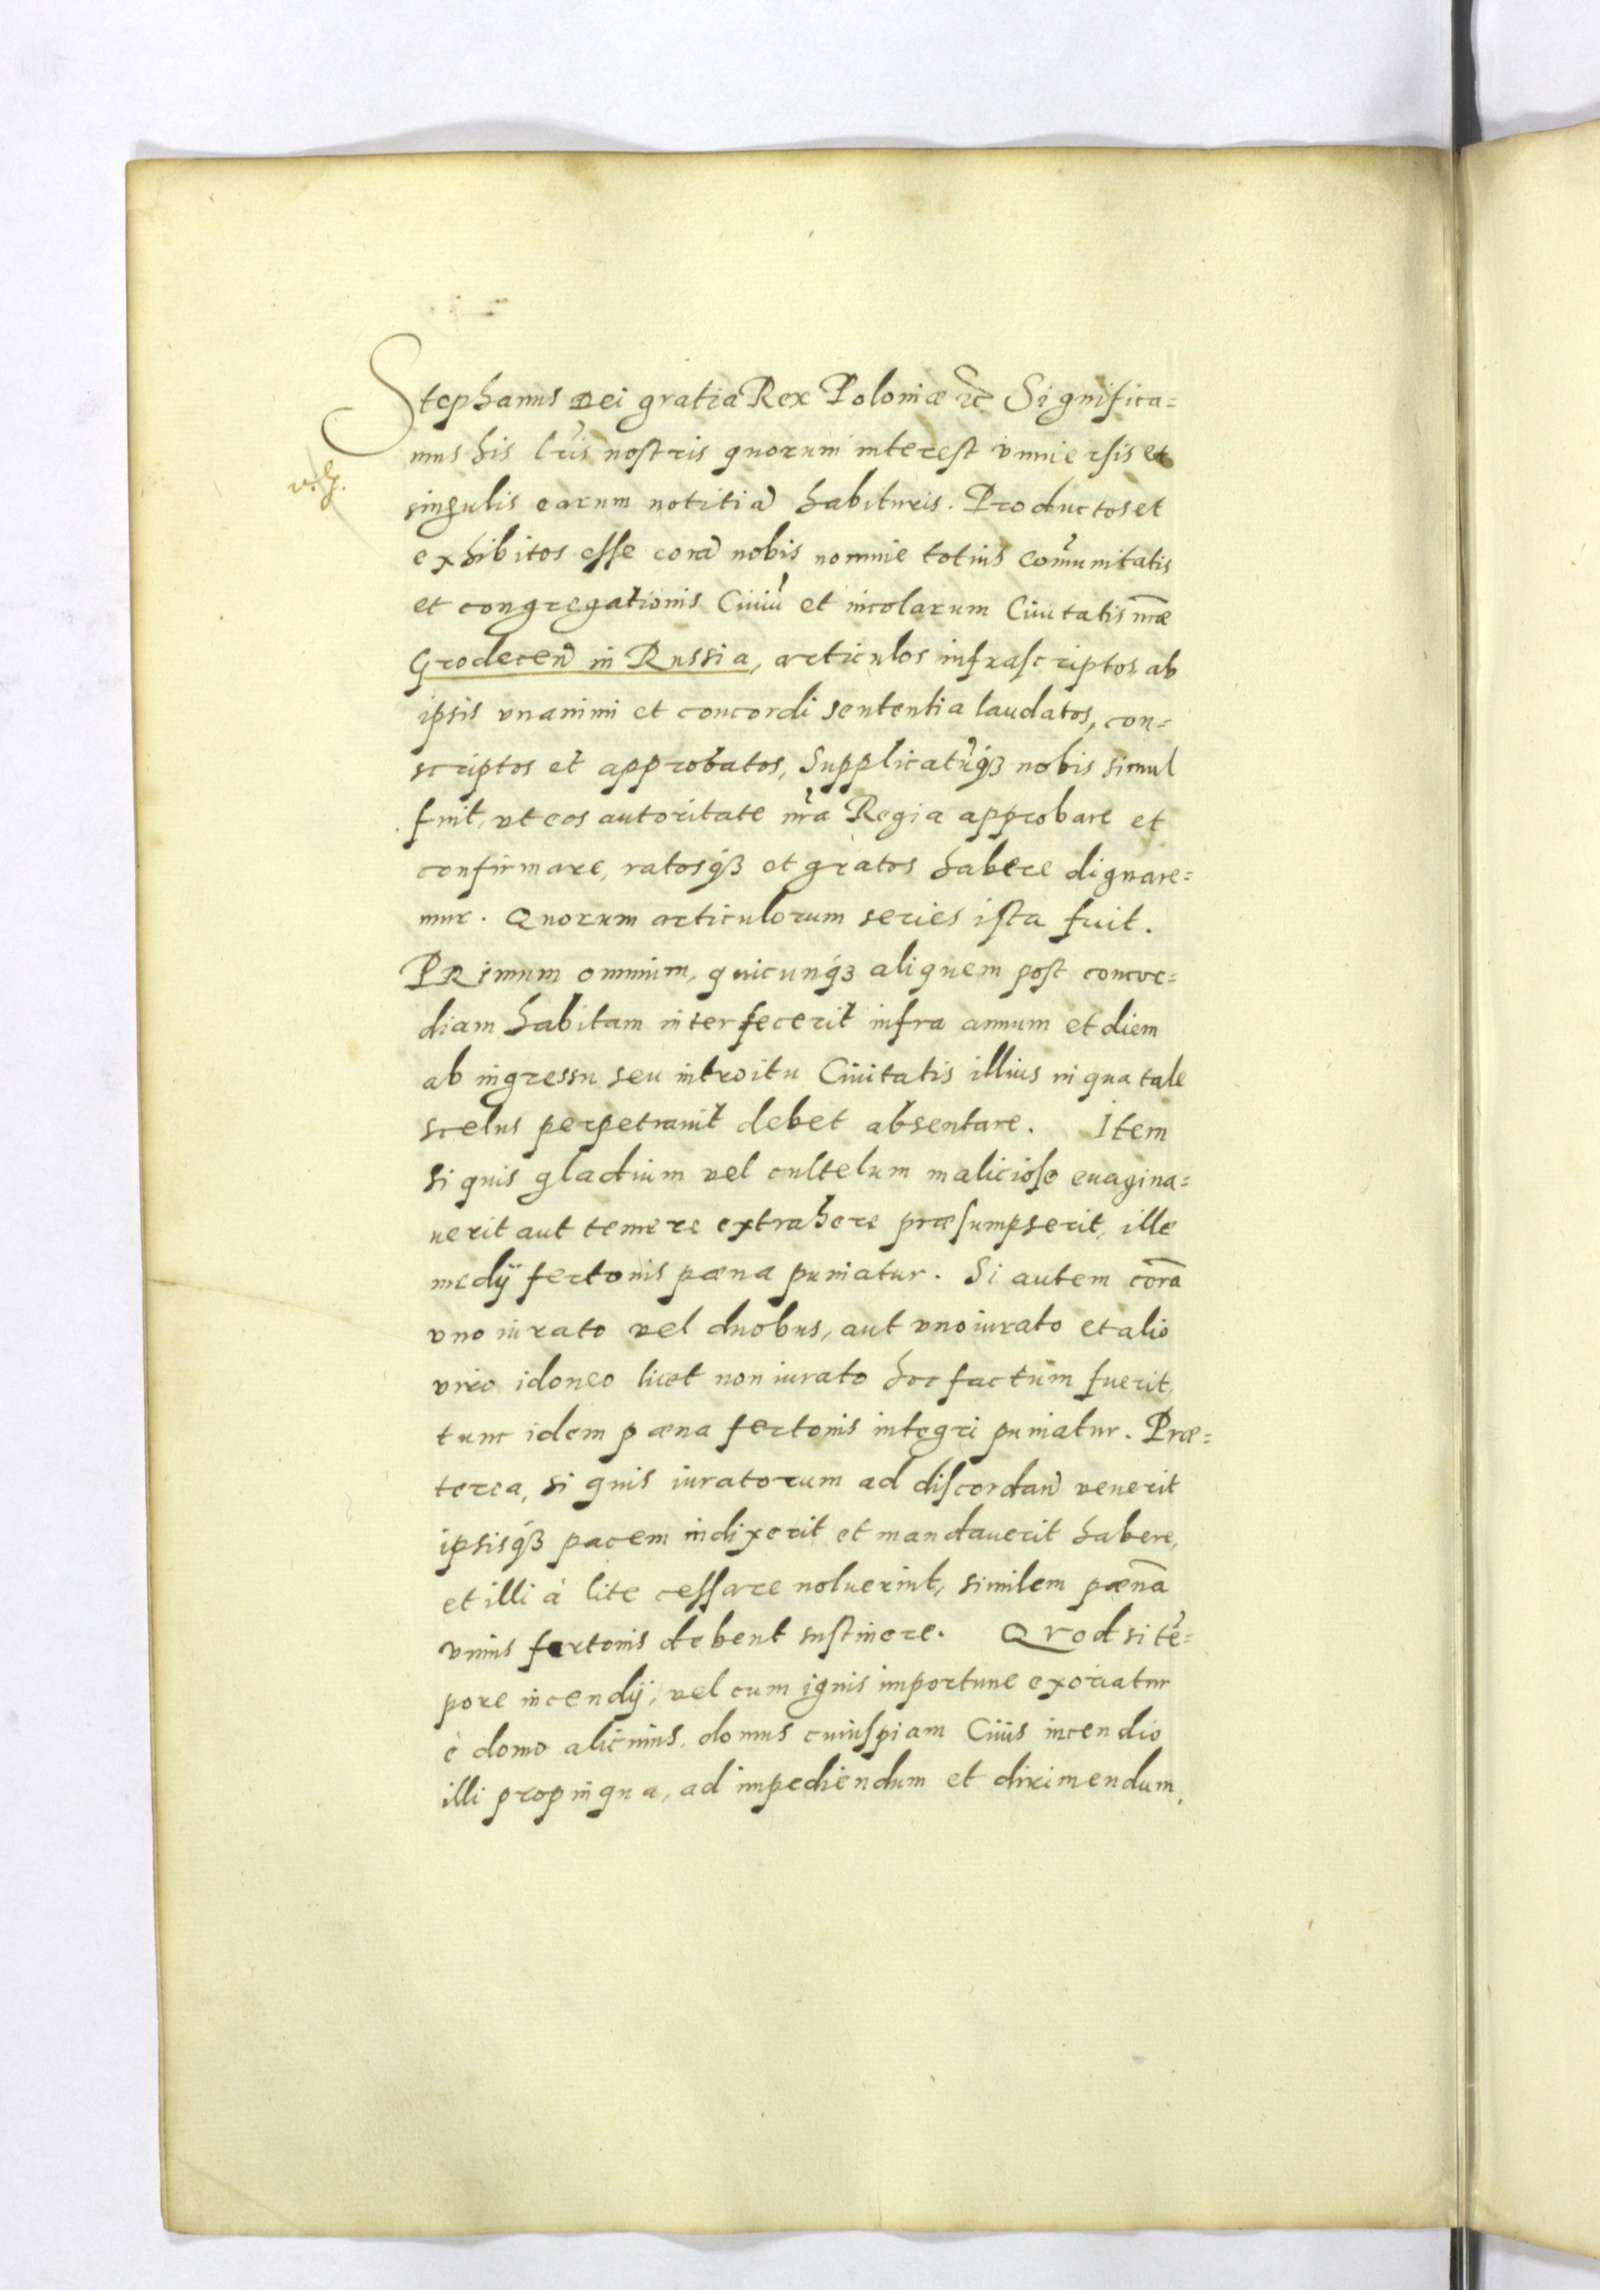 Stephanus Dei gratia Rex Poloniæ etc̃ Significa=
mus his lr̃is nostris quorum interest vniuersis et
singulis earum notitiã habituris. Productos et
exhibitos esse corã nobis nomine totius com̃unitatis
et congregationis Ciuiũ et incolarum Ciuitatis nr̃æ
Grodecen̄ in Russia, articulos infrascriptos ab
ipsis vnanimi et concordi sententia laudatos, con=
scriptos et approbatos, Supplicatũq₃ nobis simul
fuit, vt eos autoritate nr̃a Regia approbare et
confirmare, ratosq₃ et gratos habere dignare=
mur. Quorum articulorum series ista fuit.
PRimum omnium, quicunq₃ aliquem post concor=
diam habitam interfecerit infra annum et diem
ab ingressu seu introitu Ciuitatis illius in qua tale
scelus perpetrauit debet absentare. Item
si quis gladium vel cultelum maliciose euagina=
uerit aut temere extrahere præsumpserit, ille
medÿ fertonis pæna puniatur. Si autem corã
vno iurato vel duobus, aut vno iurato et alio
viro idoneo licet non iurato hoc factum fuerit,
tunc idem pæna fertonis integri puniatur. Præ=
terea, si quis iuratorum ad discordan̄ venerit
ipsisq₃ pacem indixerit et mandauerit habere,
et illi à lite cessare noluerint, similem pænã
vnius fertonis debent sustinere. Qvod si tẽ=
pore incendÿ, vel cum ignis importune exoriatur
è domo alicuius, domus cuiuspiam Ciuis incendio
illi propinqua, ad impediendum et dirimendum,